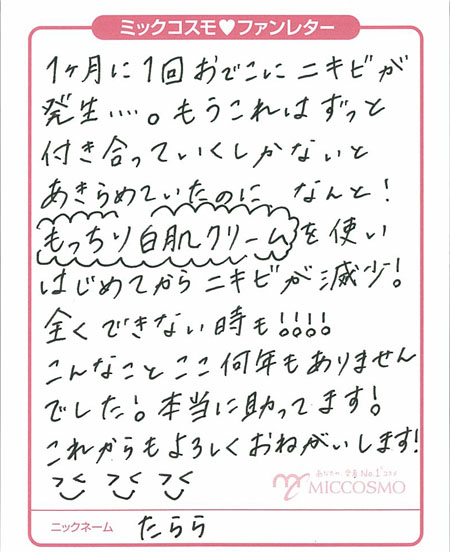 ミックコスモ♥ファンレター
1ヶ月に1回おでこにニキビが
発生‥‥。もうこれはずっと
付き合っていくしかないと
あきらめていたのに、なんと!
もっちり白肌クリームを使い
はじめてからニキビが減少!
全くできない時も!!!!
こんなことここ何年もありません
でした!本当に助ってます!
これからもよろしくおねがいします!
MICCOSMO
ニックネーム たらら